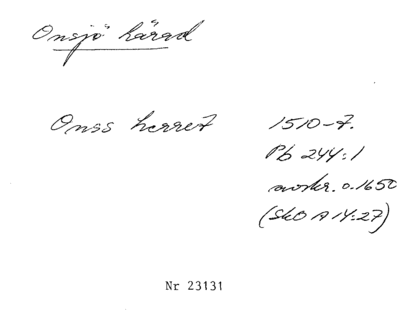 Onsjö härad
Onss herret 1510-t.
Pb 244:1
avskr. o. 1650
(SkO A 14:27)
Nr 23131